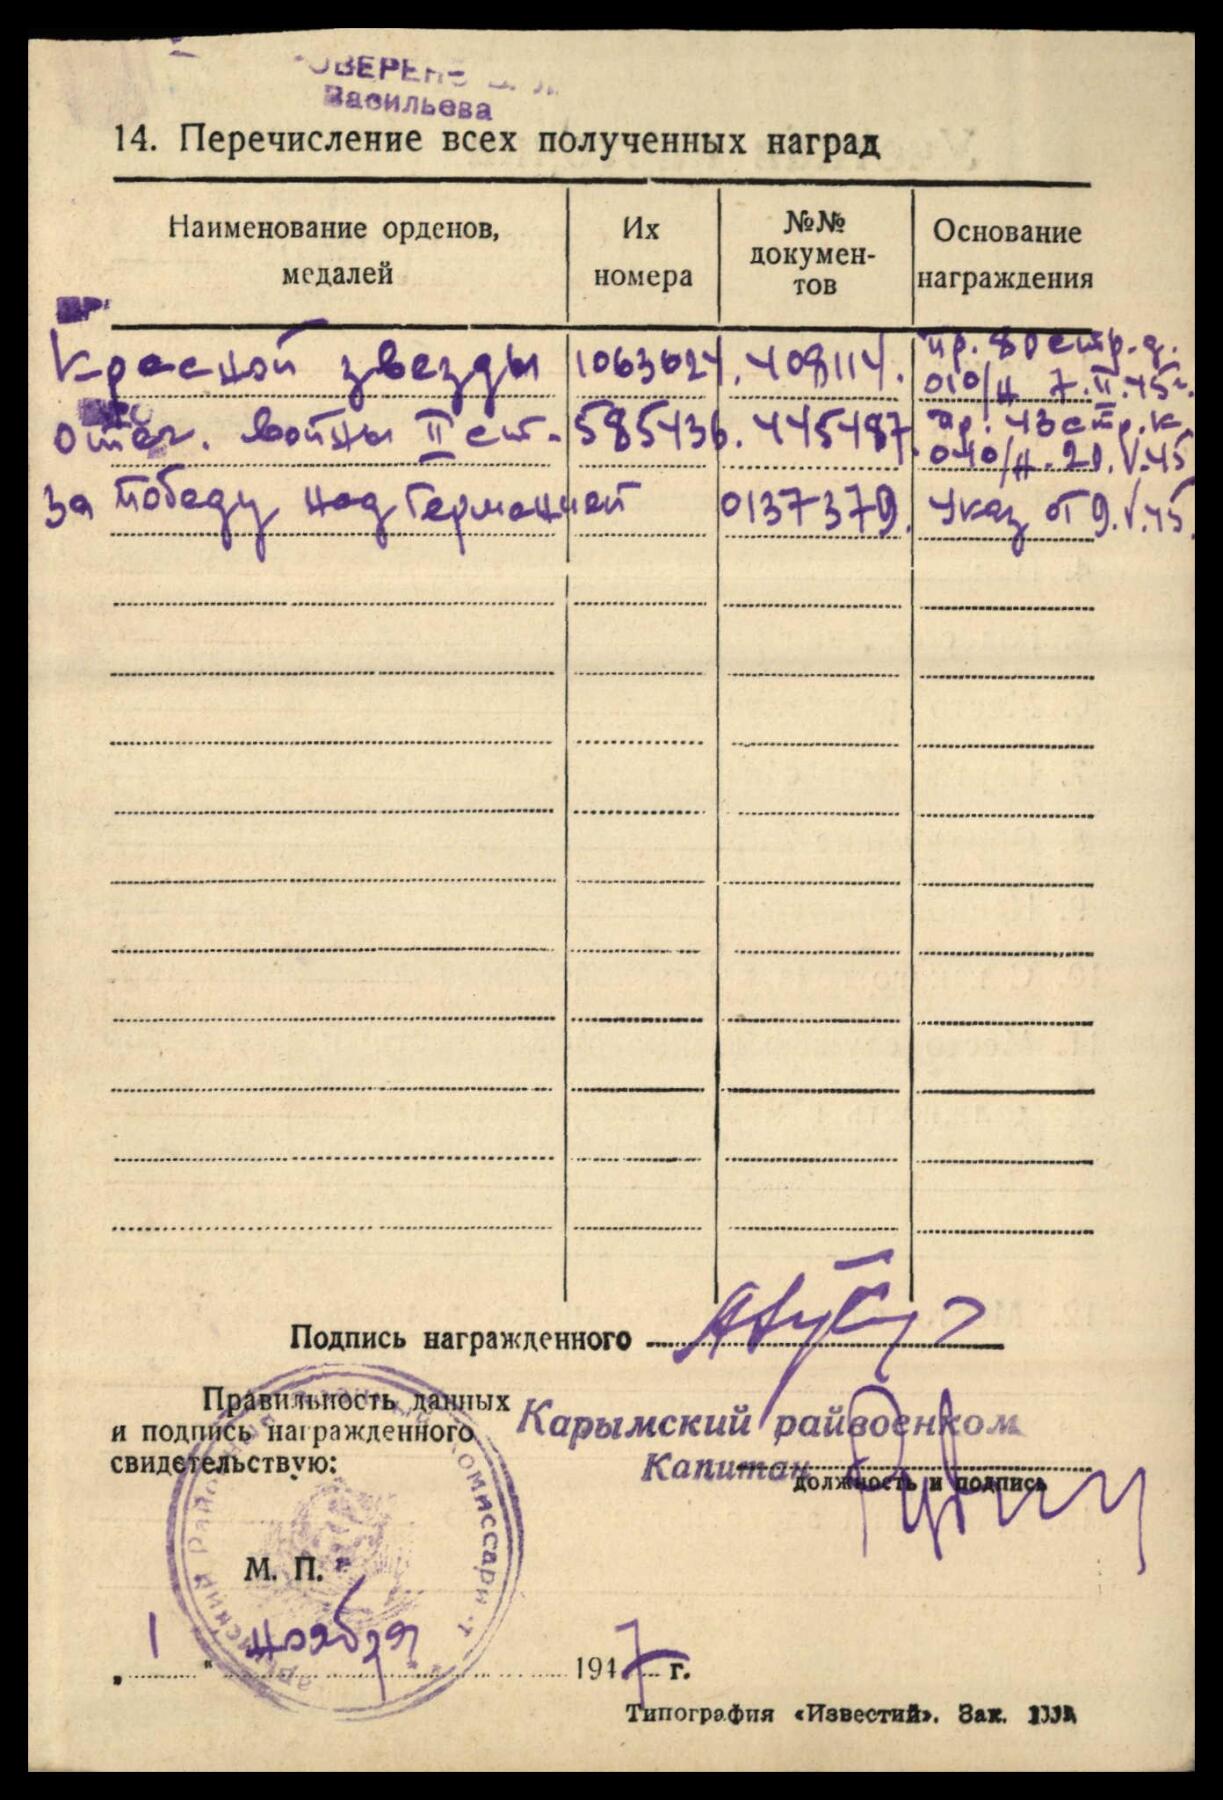 Васильева
14. Перечисление всех полученных наград
Наименование орденов, медалей
Их номера
№№ докумен-тов
Основание награждения
Красной звезды 1063624. 408114. пр. 80 стр. д. 010/н 7.II.45г.
Отеч. войны II ст. 585436. 445487. Пр. 43 стр. к. 040/н. 20.V.45
За победу над Германией 0137379. Указ от 9.V.45.
Подпись награжденного
Правильность данных
и подпись награжденного
свидетельствую:
Карымский райвоенком
Капитан
должность и подпись
М. П.
„ 1 “ ноября 1947 г.
Типография «Известий». Зак.